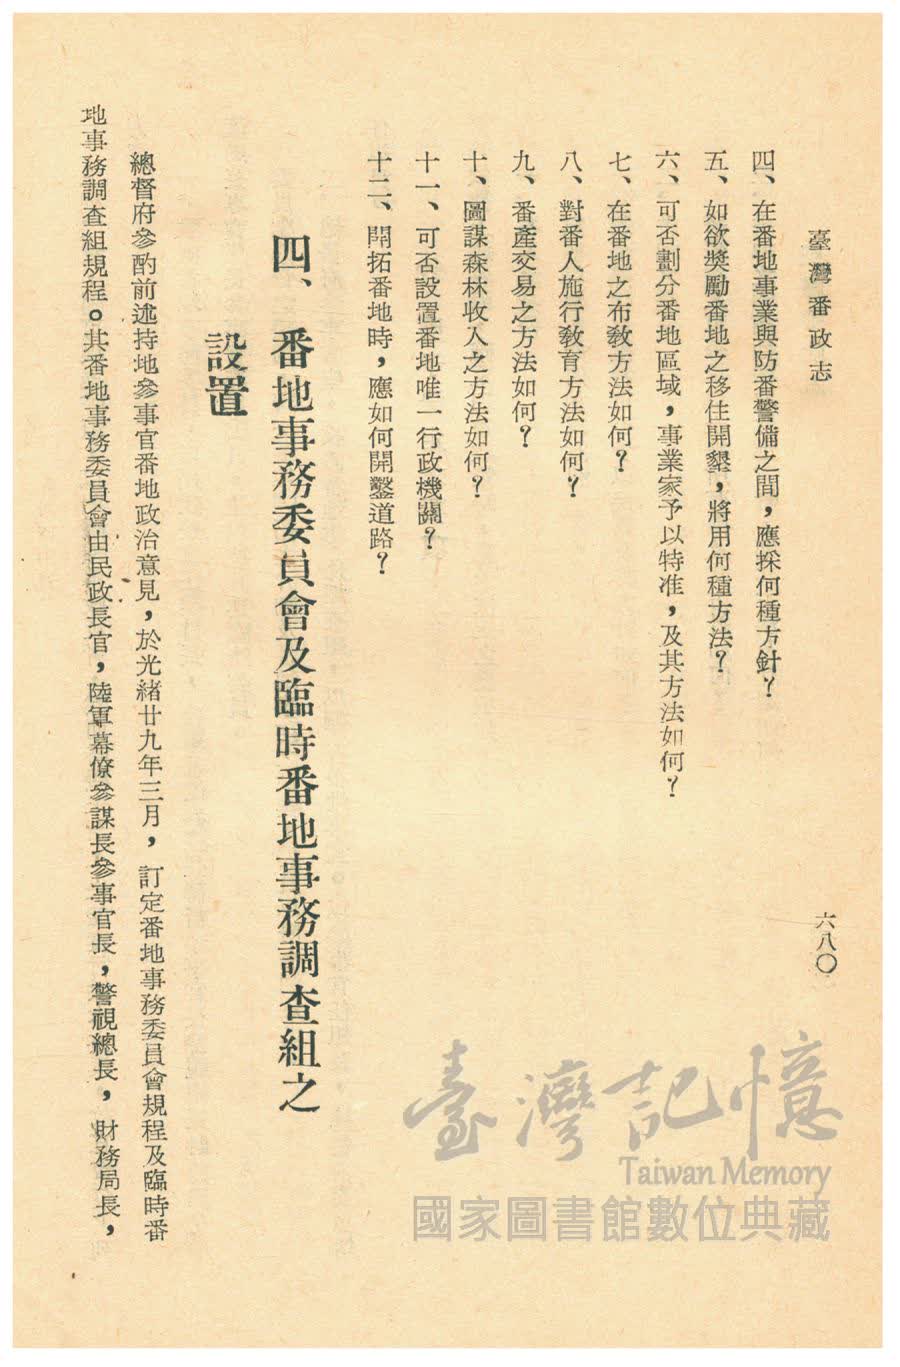 臺灣番政志
六八〇
四、在番地事業與防番警備之間，應採何種方針？
五、如欲獎勵番地之移住開墾，將用何種方法？
六、可否劃分番地區域，事業家予以特准，及其方法如何？
七、在番地之布教方法如何？
八、對番人施行教育方法如何？
九、番產交易之方法如何？
十、圖謀森林收入之方法如何？
十一、可否設置番地唯一行政機關？
十二、開拓番地時，應如何開鑿道路？
四、番地事務委員會及臨時番地事務調查組之
設置
總督府參酌前述持地參事官番地政治意見，於光緒廿九年三月，訂定番地事務委員會規程及臨時番
地事務調查組規程。其番地事務委員會由民政長官，陸軍幕僚參謀長參事官長，警視總長，財務局長，
臺灣記憶
Taiwan Memory
國家圖書館數位典藏